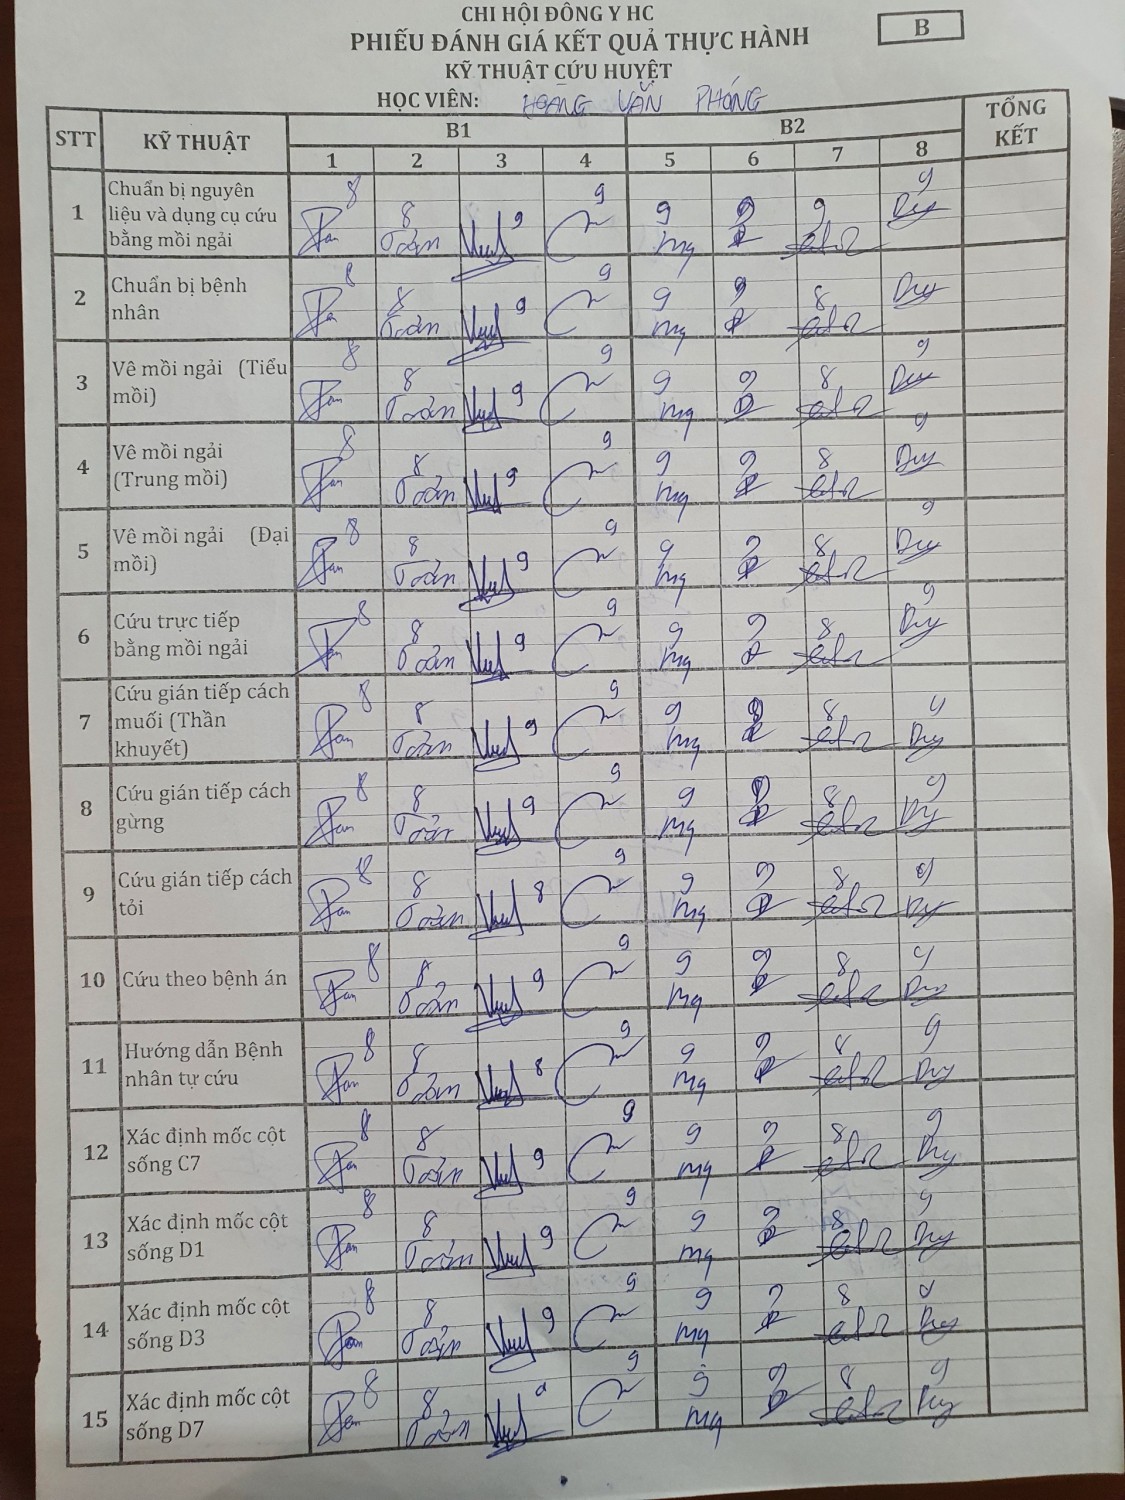 CHI HỘI ĐÔNG Y HC
PHIẾU ĐÁNH GIÁ KẾT QUẢ THỰC HÀNH
B
KỸ THUẬT CỨU HUYỆT
HỌC VIÊN: HOÀNG VĂN PHÓNG
STT KỸ THUẬT B1 B2 TỔNG KẾT
1 2 3 4 5 6 7 8
1 Chuẩn bị nguyên liệu và dụng cụ cứu bằng mồi ngải 8 8 9 9 9 9 9 9
Toản Mq Duy
2 Chuẩn bị bệnh nhân 8 8 9 9 9 9 8
Toản Mq Duy
3 Vê mồi ngải (Tiểu mồi) 8 8 9 9 9 9 8 9
Toản Mq Duy
4 Vê mồi ngải (Trung mồi) 8 8 9 9 9 9 8 9
Toản Mq Duy
5 Vê mồi ngải (Đại mồi) 8 8 9 9 9 9 8 9
Toản Mq Duy
6 Cứu trực tiếp bằng mồi ngải 8 8 9 9 9 9 8 9
Toản Mq Duy
7 Cứu gián tiếp cách muối (Thần khuyết) 8 8 9 9 9 9 8 9
Toản Mq Duy
8 Cứu gián tiếp cách gừng 8 8 9 9 9 9 8 9
Toản Mq Duy
9 Cứu gián tiếp cách tỏi 8 8 8 9 9 9 8 9
Toản Mq Duy
10 Cứu theo bệnh án 8 8 9 9 9 9 8 9
Toản Mq Duy
11 Hướng dẫn Bệnh nhân tự cứu 8 8 8 9 9 9 8 9
Toản Mq Duy
12 Xác định mốc cột sống C7 8 8 9 9 9 9 8 9
Toản Mq Duy
13 Xác định mốc cột sống D1 8 8 9 9 9 9 8 9
Toản Mq Duy
14 Xác định mốc cột sống D3 8 8 9 9 9 9 8 9
Toản Mq Duy
15 Xác định mốc cột sống D7 8 8 9 9 9 9 8 9
Toản Mq Duy